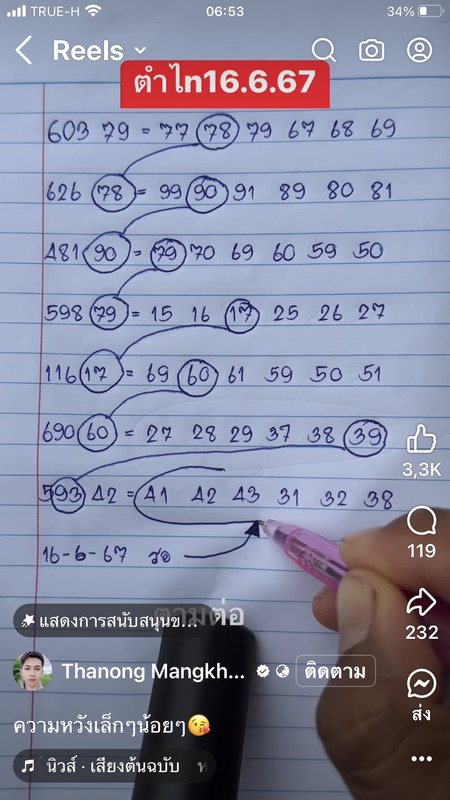 TRUE-H
06:53
34%
Reels
ตำไn16.6.67
603 79 = 77 78 79 67 68 69
626 78 = 99 90 91 89 80 81
481 90 = 79 70 69 60 59 50
598 79 = 15 16 17 25 26 27
116 17 = 69 60 61 59 50 51
690 60 = 27 28 29 37 38 39
593 42 = 41 42 43 31 32 38
16-6-67 รอ
ตามต่อ
3,3K
119
232
ส่ง
แสดงการสนับสนุนข...
Thanong Mangkh... ติดตาม
ความหวังเล็กๆน้อยๆ😘
นิวส์ · เสียงต้นฉบับ ห